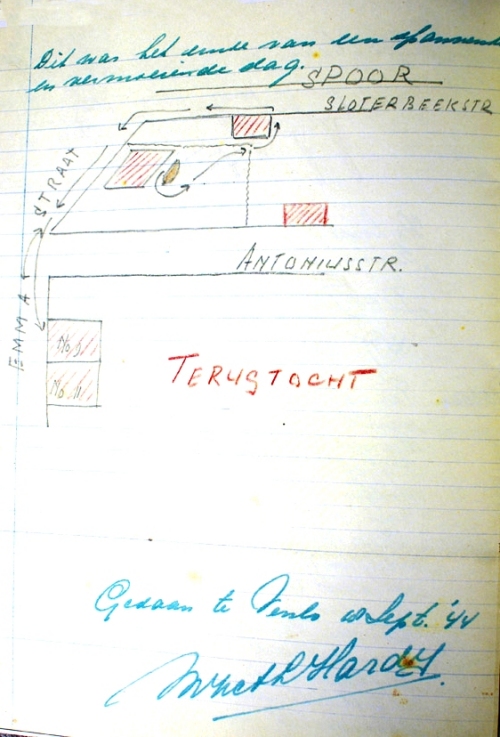 Dit was het einde van een spannende
en vermoeiende dag.
SPOOR
SLOTERBEEKSTR
STRAAT
ANTONIUSSTR.
EMMA
No
No
TERUGTOCHT
Gedaan te Venlo Sept. '44
Hardy